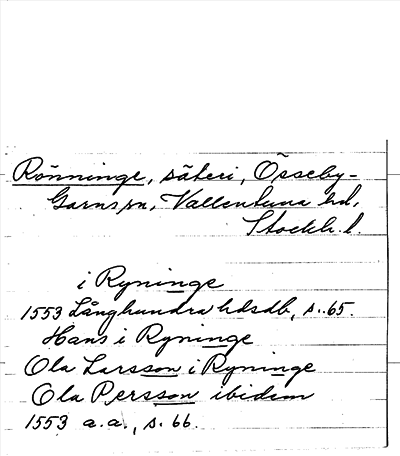 Rönninge, säteri, Össeby-
Garns sn, Vallentuna hd,
Stockh. l.
i Ryninge
1553 Långhundra hdsdb, s. 65.
Hans i Ryninge
Ola Larsson i Ryninge
Ola Persson ibidem
1553 a.a., s. 66.